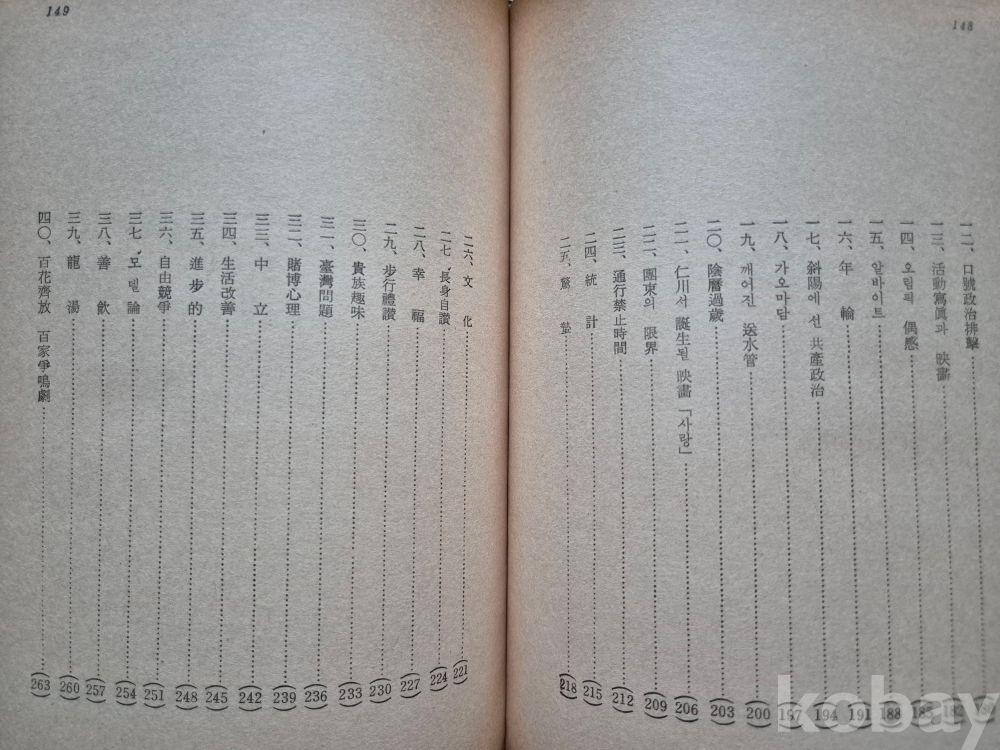 148
一二、口號政治排擊
一三、活動寫眞과 映畵 (182)
一四、오림픽 偶感 (185)
一五、알바이트 (188)
一六、年 輪 (191)
一七、斜陽에 선 共產政治 (194)
一八、가오마담 (197)
一九、깨어진 送水管 (200)
二〇、陰曆過歲 (203)
二一、仁川서 誕生될 映畵「사랑」 (206)
二二、團束의 限界 (209)
二三、通行禁止時間 (212)
二四、統 計 (215)
二五、驚 蟄 (218)
149
二六、文 化 (221)
二七、長身自讚 (224)
二八、幸 福 (227)
二九、步行禮讚 (230)
三〇、貴族趣味 (233)
三一、臺灣問題 (236)
三二、賭博心理 (239)
三三、中 立 (242)
三四、生活改善 (245)
三五、進步的 (248)
三六、自由競爭 (251)
三七、모델論 (254)
三八、善 飮 (257)
三九、龍 湯 (260)
四〇、百花齊放 百家爭鳴劇 (263)
kobay